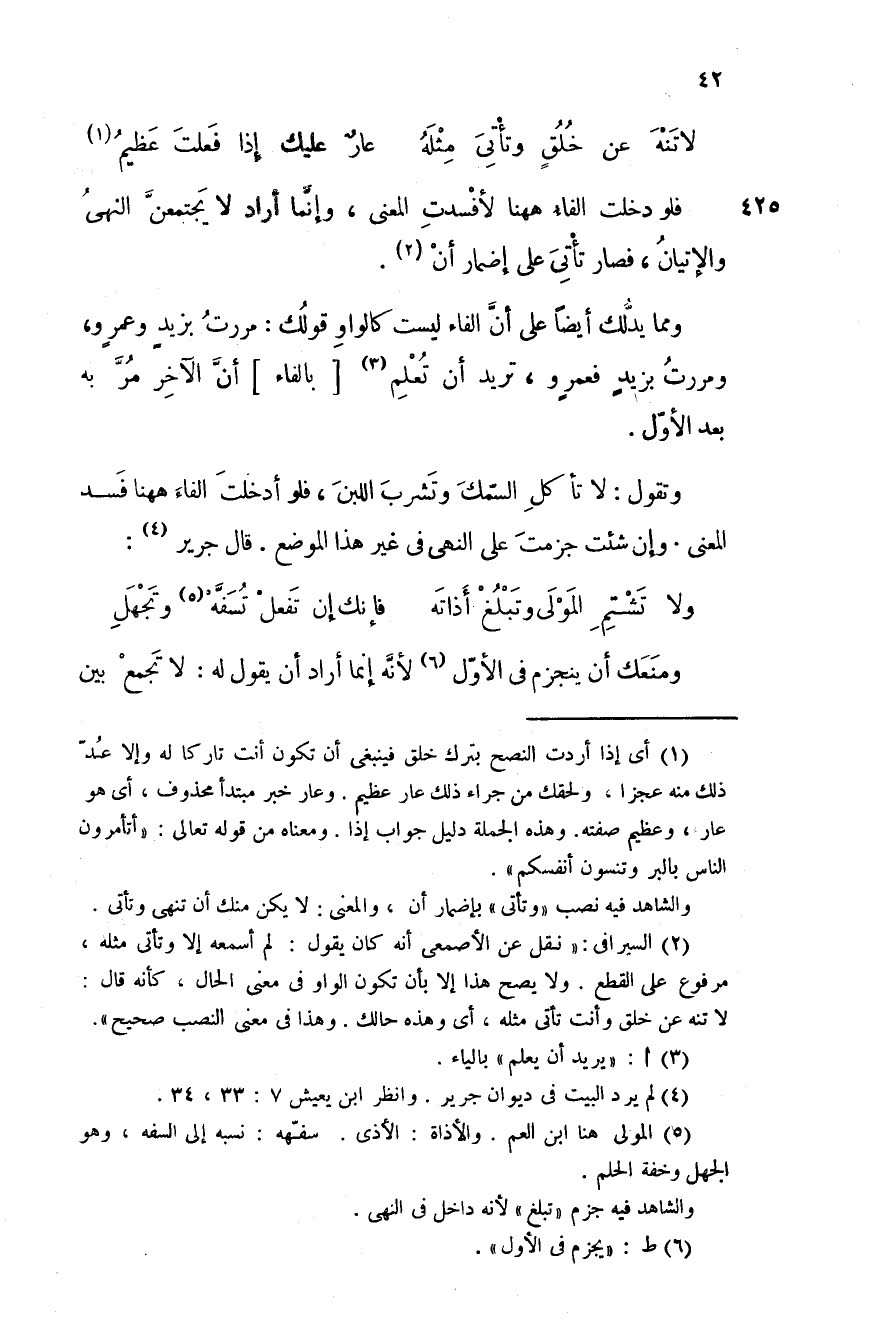 ٤٢
لاتَنْهَ عن خُلُقٍ وتأْتِىَ مِثْلَهُ عارٌ عليك إذا فَعلتَ عَظيمُ(١)
٤٢٥ فلو دخلت الفاء ههنا لأفْسدتِ المعنى ، وإنَّما أراد لا يَجتمعنَّ النهىُ
والإتيانُ ، فصار تأْتِىَ على إضمار أنْ (٢) .
ومما يدلُّك أيضاً على أنَّ الفاء ليست كالواوِ قولُك : مررتُ بزيدٍ وعمرٍو ،
ومررتُ بزيدٍ فعمرٍو ، تريد أن تُعْلِم (٣) [ بالفاء ] أنَّ الآخِر مُرَّ به
بعد الأوّل .
وتقول : لا تأكلِ السّمكَ وتَشربَ اللبنَ ، فلو أدخلتَ الفاءَ ههنا فَسد
المعنى . وإن شئت جزمتَ على النهى فى غير هذا الموضع . قال جرير (٤) :
ولا تَشْتِمِ المَوْلَى وتَبْلُغْ أَذاتَه فإنك إن تَفعلْ تُسَفَّهْ(٥) وتَجْهَلِ
ومنَعَك أن ينجزم فى الأوّل (٦) لأنَّه إنما أراد أن يقول له : لا تَجمعْ بين
(١) أى إذا أردت النصح بترك خلق فينبغى أن تكون أنت تاركا له وإلا عُدّ
ذلك منه عجزا ، ولحقك من جراء ذلك عار عظيم . وعار خبر مبتدأ محذوف ، أى هو
عار ، وعظيم صفته . وهذه الجملة دليل جواب إذا . ومعناه من قوله تعالى : «أتأمرون
الناس بالبر وتنسون أنفسكم» .
والشاهد فيه نصب «وتأتى» بإضمار أن ، والمعنى : لا يكن منك أن تنهى وتأتى .
(٢) السيرافى : « نقل عن الأصمعى أنه كان يقول : لم أسمعه إلا وتأتى مثله ،
مرفوع على القطع . ولا يصح هذا إلا بأن تكون الواو فى معنى الحال ، كأنه قال :
لا تنه عن خلق وأنت تأتى مثله ، أى وهذه حالك . وهذا فى معنى النصب صحيح» .
(٣) أ : «يريد أن يعلم» بالياء .
(٤) لم يرد البيت فى ديوان جرير . وانظر ابن يعيش ٧ : ٣٣ ، ٣٤ .
(٥) المولى هنا ابن العم . والأذاة : الأذى . سفّهه : نسبه إلى السفه ، وهو
الجهل وخفة الحلم .
والشاهد فيه جزم «تبلغ» لأنه داخل فى النهى .
(٦) ط : «يجزم فى الأول» .